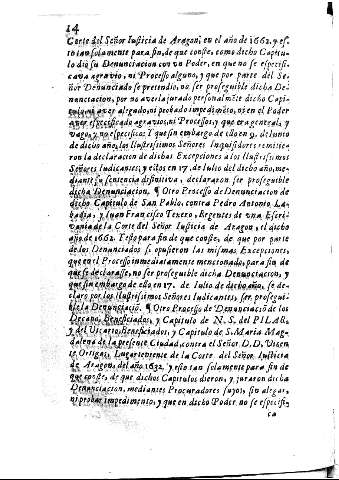 14
Corte del Señor Iusticia de Aragon, en el año de 1662. y es-
to tan solamente para fin, de que conste, como dicho Capitu-
lo diò su Denunciacion con vn Poder, en que no se especifi-
cava agravio, ni Processo alguno, y que por parte del Se-
ñor Denunciado se pretendio, no ser proseguible dicha De-
nunciacion, por no aver la jurado personalmẽte dicho Capi-
tulo, ni aver alegado, ni probado impedimẽto, ni en el Poder
aver especificado agravio, ni Processos, y que era general, y
vago, y no especifico: Y que sin embargo de ello en 9. de Iunio
de dicho año, los Ilustrissimos Señores Inquisidores remitie-
ron la declaracion de dichas Excepciones à los Ilustrissimos
Señores Iudicantes; y estos en 17. de Iulio del dicho año, me-
diante su sentencia difinitiva, declararon ser proseguible
dicha Denunciacion. ¶ Otro Processo de Denunciacion de
dicho Capitulo de San Pablo, contra Pedro Antonio La-
badia, y Iuan Francisco Texero, Regentes de vna Escri-
vania de la Corte del Señor Iusticia de Aragon, el dicho
año de 1662. Y esto para fin de que conste, de que por parte
de los Denunciados se opusieron las mismas Excepciones,
que en el Processo inmediatamente mencionado, para fin de
que se declarasse, no ser proseguible dicha Denunciacion, y
que sin embargo de ello en 17. de Iulio de dicho año, se de-
clarò por los Ilustrissimos Señores Iudicantes, ser prosegui-
ble la Denunciaciõ. ¶ Otro Processo de Denunciaciõ de los
Decano, Beneficiados, y Capitulo de N. S. del PILAR,
y del Vicario, Beneficiados, y Capitulo de S. Maria Mag-
dalena de la presente Ciudad, contra el Señor D. D. Vicen-
te Ortigas, Lugarteniente de la Corte del Señor Iusticia
de Aragon, del año 1692. y esto tan solamente para fin de
que conste, de que dichos Capitulos dieron, y juraron dicha
Denunciacion, mediante Procuradores suyos, sin alegar,
ni probar impedimento, y que en dicho Poder no se especifi-
ca